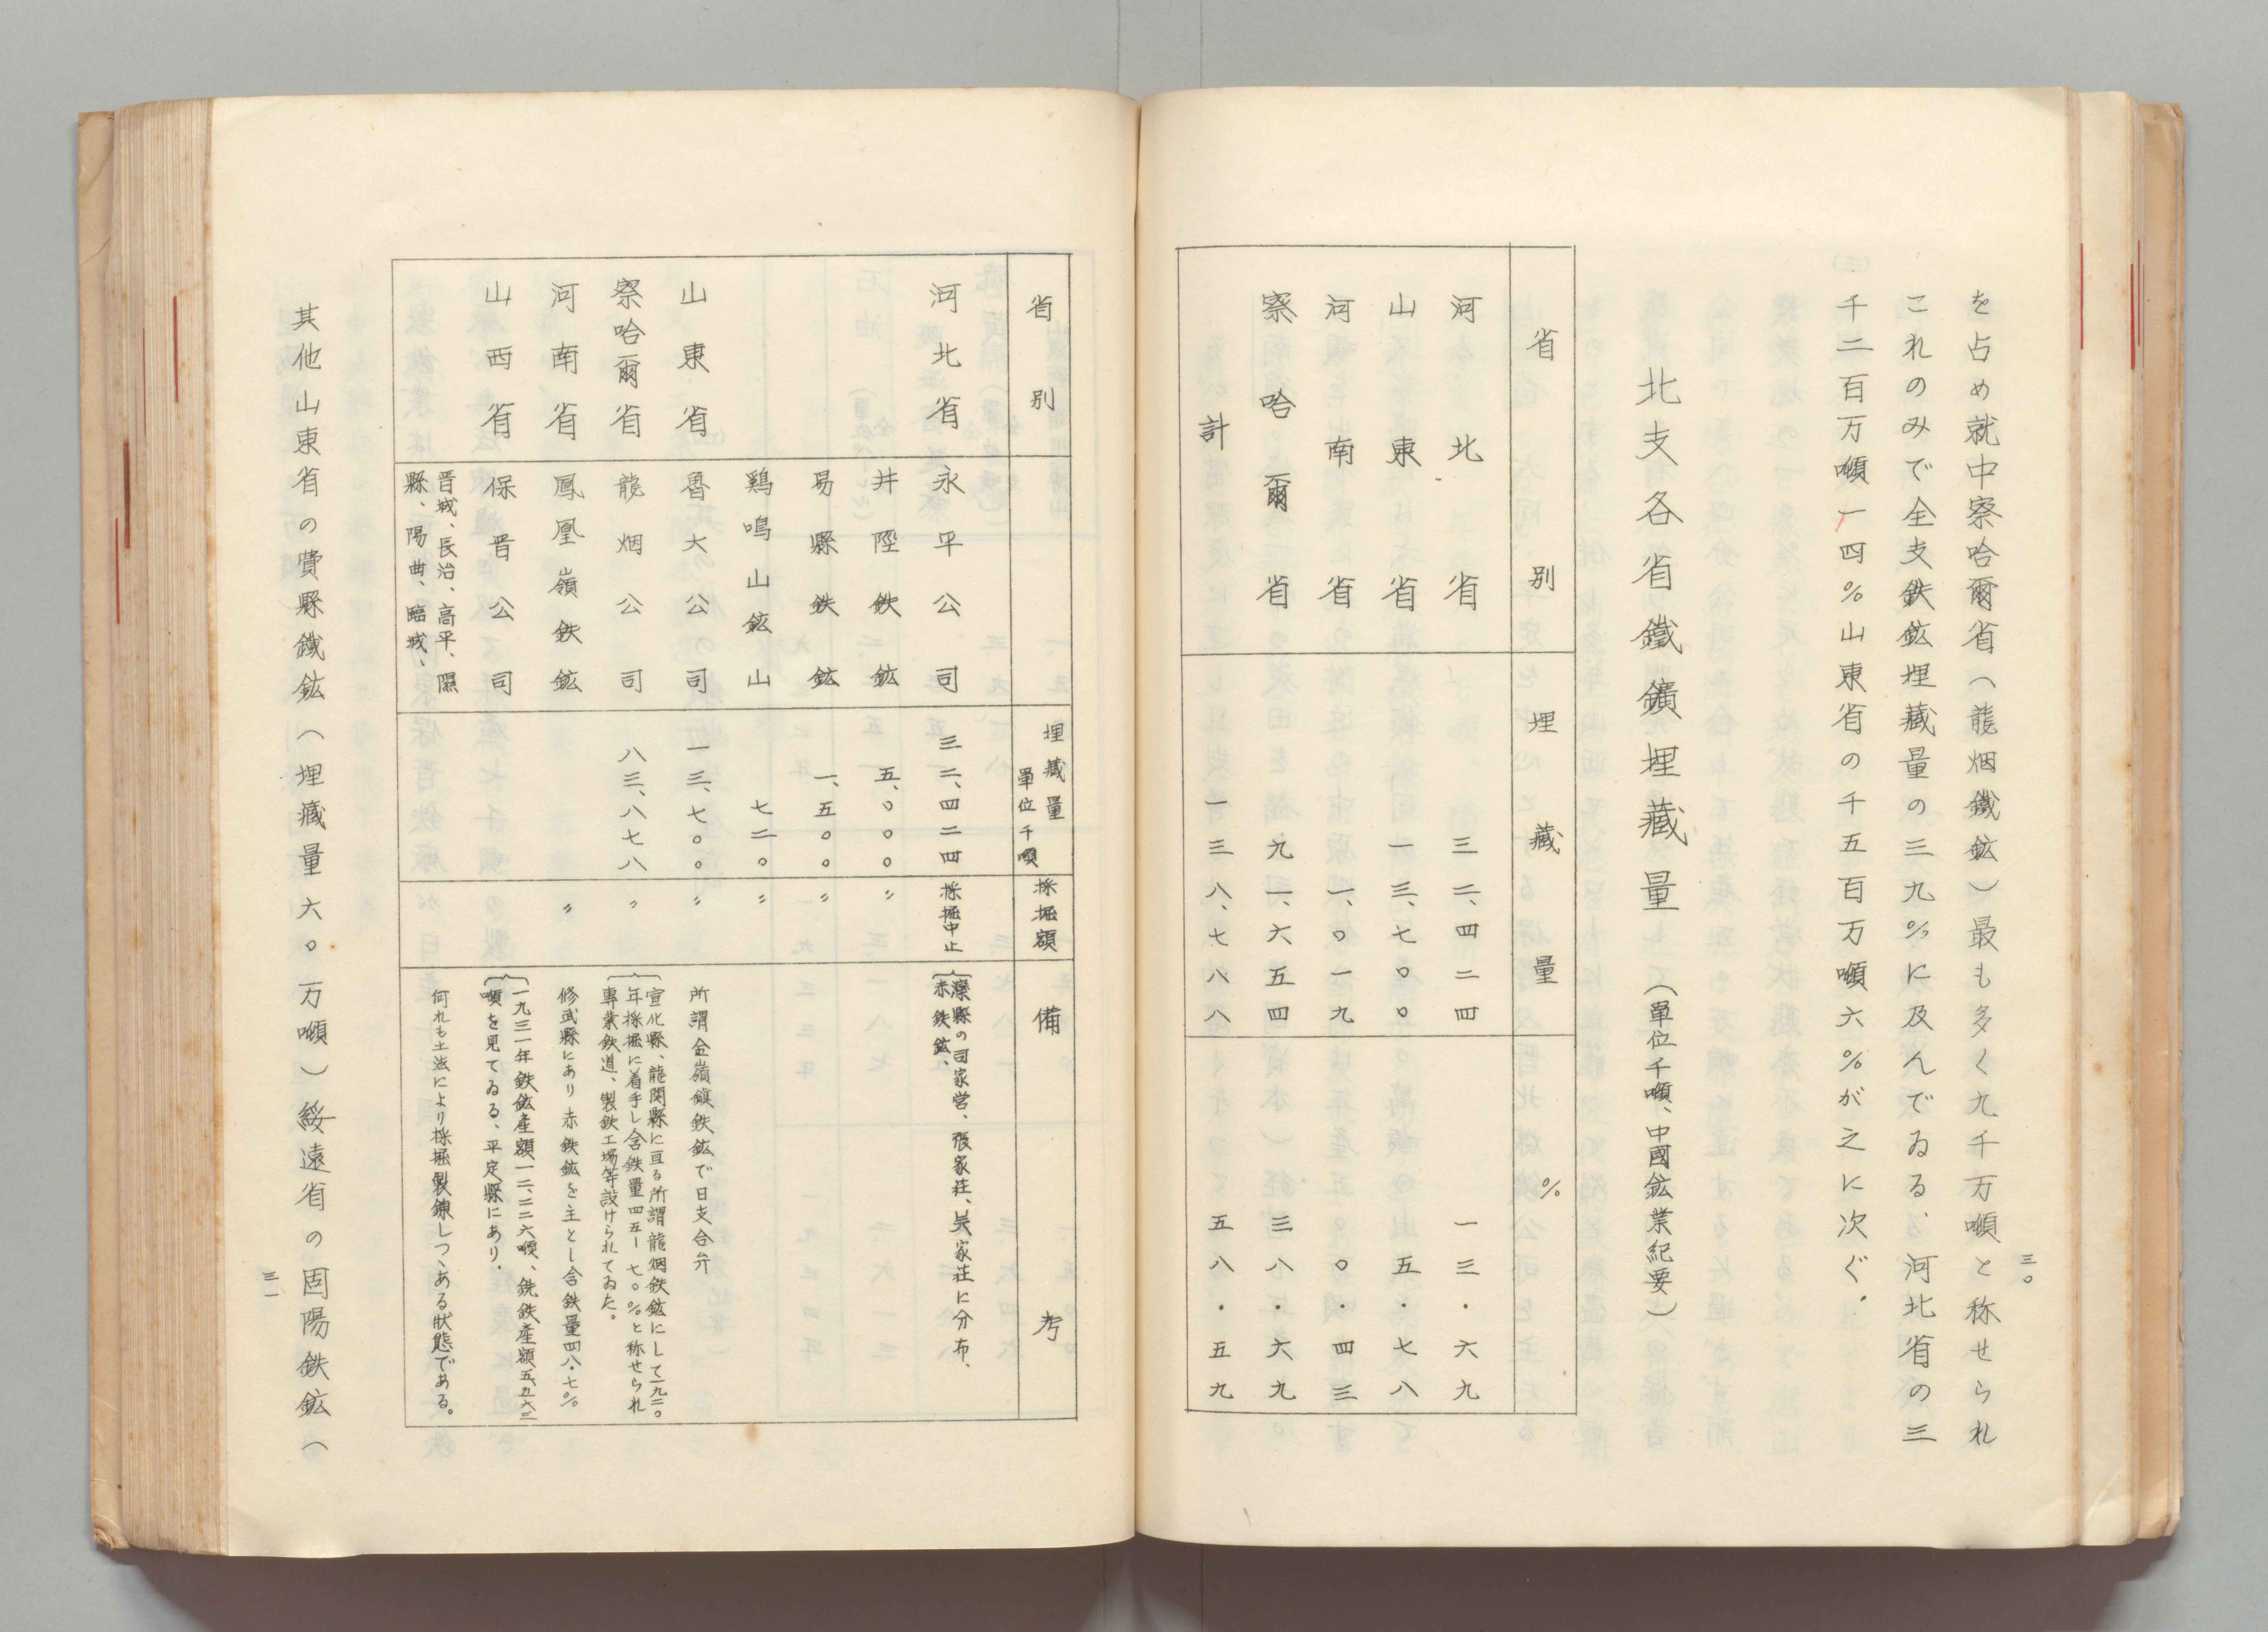 三〇
を占め就中察哈爾省（龍烟鐵鉱）最も多く九千万噸と称せられ
これのみで全支鉄鉱埋藏量の三九％に及んでゐる、河北省の三
千二百万噸一四％山東省の千五百万噸六％が之に次ぐ．
北支各省鐵鑛埋藏量（單位千噸、中國鉱業紀要）
省別　埋藏量　％
河北省　三二、四二四　一三・六九
山東省　一三、七〇〇　五・七八
河南省　一、〇一九　〇・四三
察哈爾省　九一、六五四　三八・六九
計　一三八、七八八　五八・五九
省別　埋藏量　單位千噸　採掘額　備考
河北省　永平公司　三二、四二四　採掘中止　灤縣の司家営、張家荘、吴家荘に分布、
赤鉄鉱、
井陘鉄鉱　五、〇〇〇　〃
易縣鉄鉱　一、五〇〇　〃
鷄鳴山鉱山　七二〇　〃
山東省　魯大公司　一三、七〇〇　〃　所謂金嶺鎮鉄鉱で日支合弁
察哈爾省　龍烟公司　八三、八七八　〃　宣化縣、龍関縣に亘る所謂龍烟鉄鉱にして一九二〇
年採掘に着手し含鉄量四五ー七〇％と称せられ
專業鉄道、製鉄工場等設けられてゐた。
河南省　鳳凰嶺鉄鉱　〃　修武縣にあり赤鉄鉱を主とし含鉄量四八・七％
山西省　保晋公司　一九三一年鉄鉱産額一二、二二六噸、銑鉄産額五、五六三
噸を見てゐる、平定縣にあり．
晋城、長治、高平、隰
縣、陽曲、臨城、　何れも土法により採掘製錬しつゝある狀態である。
其他山東省の費縣鐵鉱（埋藏量六〇万噸）綏遠省の固陽鉄鉱（
三一